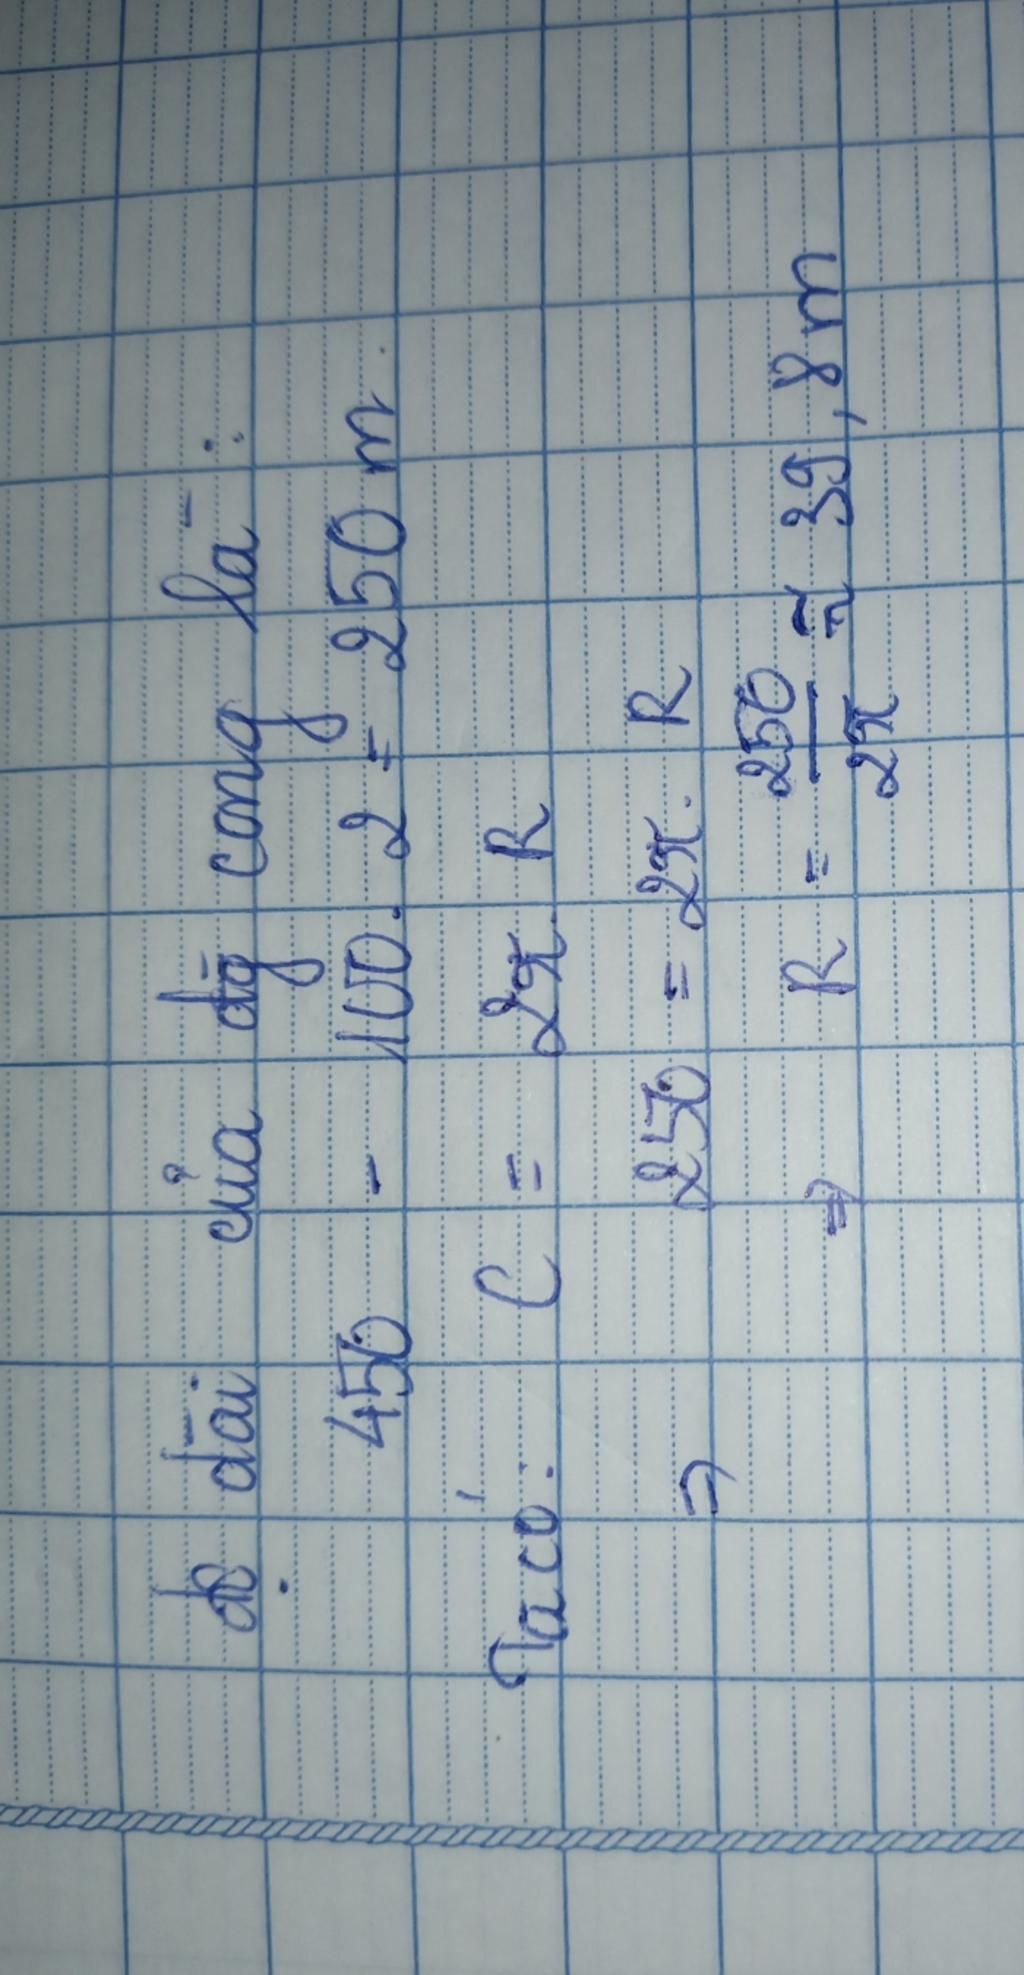 độ dài của đg cong là:
450 - 100.2 = 250 m.
Ta có: C = 2π.R
⇒ 250 = 2π.R
⇒ R = 250/2π ≈ 39,8 m